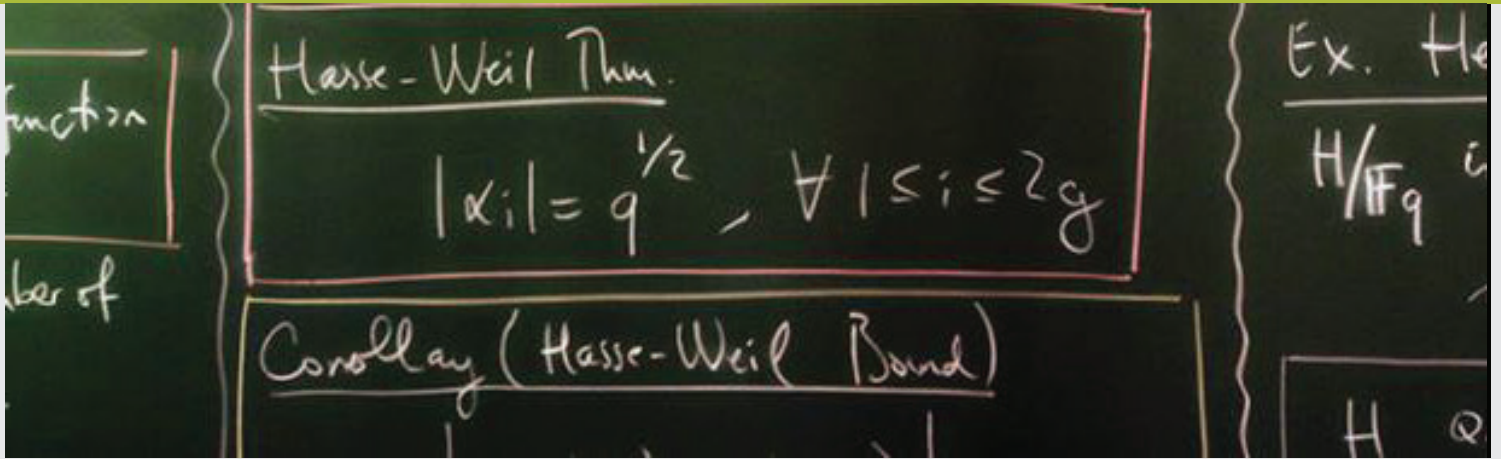 function
ber of
Hasse-Weil Thm.
|αi| = q^1/2, ∀ 1 ≤ i ≤ 2g
Corollay (Hasse-Weil Bound)
Ex. He
H/𝔽q i
H Q